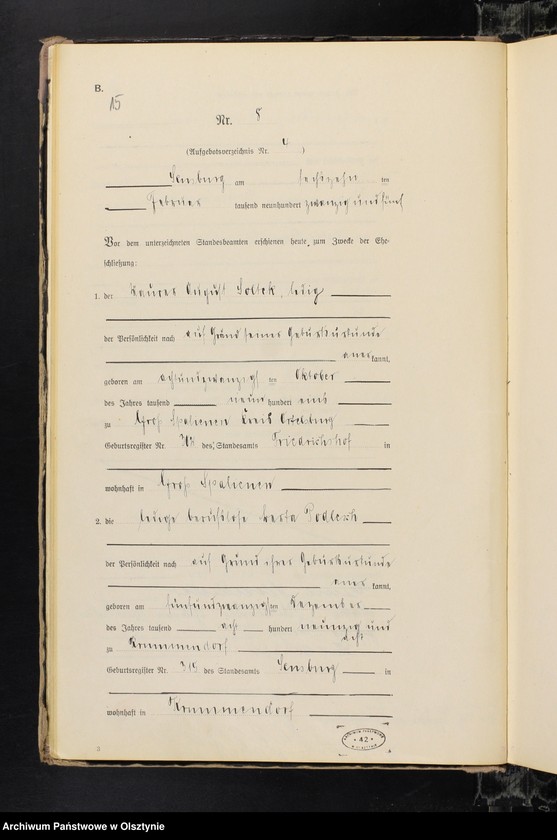 B.
15
Nr. 8
(Aufgebotsverzeichnis Nr. 4)
Sensburg am sechzehn ten
Februar tausend neunhundert zwanzig und fünf
Vor dem unterzeichneten Standesbeamten erschienen heute zum Zwecke der Ehe-
schließung:
1. der Maurer August Soltek, ledig
der Persönlichkeit nach auf Grund seiner Geburtsurkunde
aner kannt,
geboren am achtundzwanzigsten Oktober
des Jahres tausend neun hundert eins
zu Groß Spalienen Kreis Ortelsburg
Geburtsregister Nr. des Standesamts Friedrichshof in
wohnhaft in Groß Spalienen
2. die ledige berufslose Podlech
der Persönlichkeit nach auf Grund ihrer Geburtsurkunde
aner kannt,
geboren am fünfundzwanzigsten Dezember
des Jahres tausend acht hundert neunzig und
acht
zu Krummendorf
Geburtsregister Nr. 315 des Standesamts Sensburg in
wohnhaft in Krummendorf
42
3
Archiwum Państwowe w Olsztynie